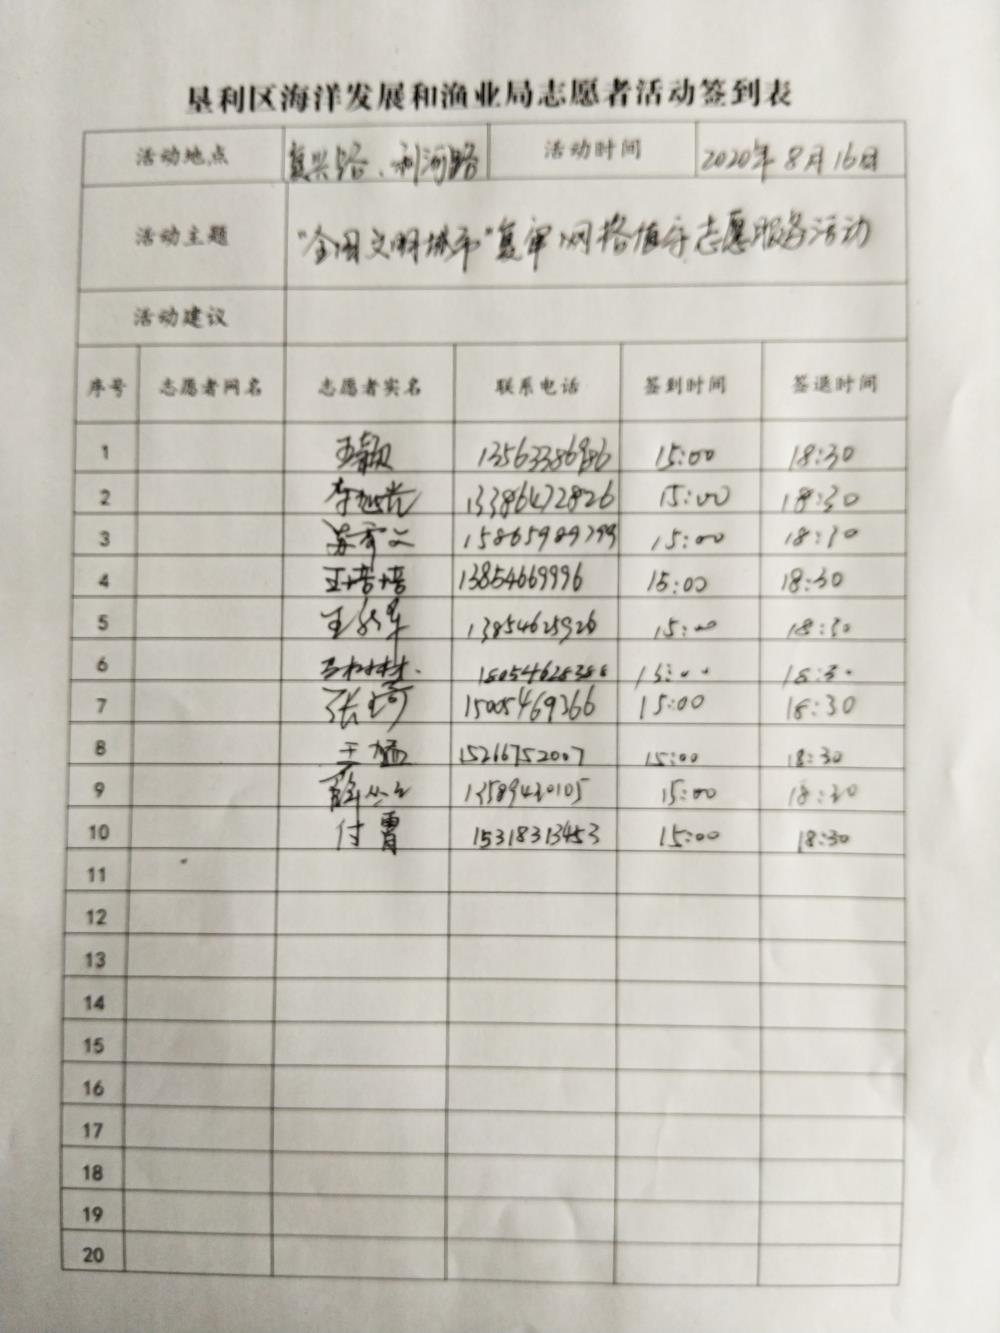 垦利区海洋发展和渔业局志愿者活动签到表
活动地点 复兴路、利河路 活动时间 2020年8月16日
活动主题 "全国文明城市"复审网格值守志愿服务活动
活动建议
序号 志愿者网名 志愿者实名 联系电话 签到时间 签退时间
1 王颖 15:00 18:30
2 13386472826 15:00 18:30
3 15865989799 15:00 18:30
4 王培培 13854669996 15:00 18:30
5 13854625926 15:00 18:30
6 18054628388 15:00 18:30
7 张琦 15005469366 15:00 18:30
8 王猛 15266752007 15:00 18:30
9 13589420105 15:00 18:30
10 付霄 15318313453 15:00 18:30
11
12
13
14
15
16
17
18
19
20